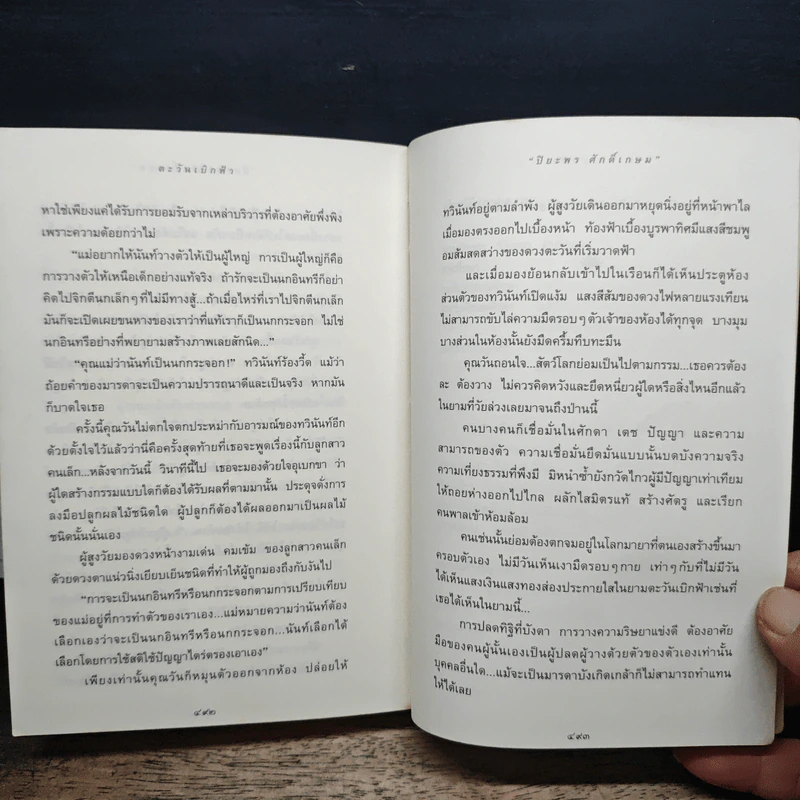 ตะวันเบิกฟ้า
หาใช่เพียงแค่ได้รับการยอมรับจากเหล่าบริวารที่ต้องอาศัยพึ่งพิง
เพราะความด้อยกว่าไม่
“แม่อยากให้นันท์วางตัวให้เป็นผู้ใหญ่ การเป็นผู้ใหญ่ก็คือ
การวางตัวให้เหนือเด็กอย่างแท้จริง ถ้ารักจะเป็นนกอินทรีก็อย่า
คิดไปจิกตีนกเล็กๆที่ไม่มีทางสู้...ถ้าเมื่อไหร่ที่เราไปจิกตีนกเล็ก
มันก็จะเปิดเผยขนหางของเราว่าที่แท้เราก็เป็นนกกระจอก ไม่ใช่
นกอินทรีอย่างที่พยายามสร้างภาพเลยสักนิด...”
“คุณแม่ว่านันท์เป็นนกกระจอก!” ทวินันท์ร้องวี้ด แม้ว่า
ถ้อยคำของมารดาจะเป็นความปรารถนาดีและเป็นจริง หากมัน
ก็บาดใจเธอ
ครั้งนี้คุณวันไม่ตกใจตกประหม่ากับอารมณ์ของทวินันท์อีก
ด้วยตั้งใจไว้แล้วว่านี่คือครั้งสุดท้ายที่เธอจะพูดเรื่องนี้กับลูกสาว
คนเล็ก...หลังจากวันนี้ วินาทีนี้ไป เธอจะมองด้วยใจอุเบกขา ว่า
ผู้ใดสร้างกรรมแบบใดก็ต้องได้รับผลที่ตามมานั้น ประดุจดั่งการ
ลงมือปลูกผลไม้ชนิดใด ผู้ปลูกก็ต้องได้ผลออกมาเป็นผลไม้
ชนิดนั้นนั่นเอง
ผู้สูงวัยมองดวงหน้างามเด่น คมเข้ม ของลูกสาวคนเล็ก
ด้วยดวงตาแน่วนิ่งเยียบเย็นชนิดที่ทำให้ผู้ถูกมองถึงกับงันไป
“การจะเป็นนกอินทรีหรือนกกระจอกตามการเปรียบเทียบ
ของแม่อยู่ที่การทำตัวของเราเอง...แม่หมายความว่านันท์ต้อง
เลือกเองว่าจะเป็นนกอินทรีหรือนกกระจอก...นันท์เลือกได้
เลือกโดยการใช้สติใช้ปัญญาไตร่ตรองเอาเอง”
เพียงเท่านั้นคุณวันก็หมุนตัวออกจากห้อง ปล่อยให้
๔๙๒
“ปิยะพร ศักดิ์เกษม”
ทวินันท์อยู่ตามลำพัง ผู้สูงวัยเดินออกมาหยุดนิ่งอยู่ที่หน้าพาไล
เมื่อมองตรงออกไปเบื้องหน้า ท้องฟ้าเบื้องบูรพาทิศมีแสงสีชมพู
อมส้มสดสว่างของดวงตะวันที่เริ่มวาดฟ้า
และเมื่อมองย้อนกลับเข้าไปในเรือนก็ได้เห็นประตูห้อง
ส่วนตัวของทวินันท์เปิดแง้ม แสงสีส้มของดวงไฟหลายแรงเทียน
ไม่สามารถขับไล่ความมืดรอบๆตัวเจ้าของห้องได้ทุกจุด บางมุม
บางส่วนในห้องนั้นยังมืดครึ้มทึบทะมึน
คุณวันถอนใจ...สัตว์โลกย่อมเป็นไปตามกรรม...เธอควรต้อง
ละ ต้องวาง ไม่ควรคิดหวังและยึดเหนี่ยวผู้ใดหรือสิ่งไหนอีกแล้ว
ในยามที่วัยล่วงเลยมาจนถึงป่านนี้
คนบางคนก็เชื่อมั่นในศักดา เดช ปัญญา และความ
สามารถของตัว ความเชื่อมั่นยึดมั่นแบบนั้นบดบังความจริง
ความเที่ยงธรรมที่พึงมี มิหนำซ้ำยังกวัดไกวผู้มีปัญญาเท่าเทียม
ให้ถอยห่างออกไปไกล ผลักไสมิตรแท้ สร้างศัตรู และเรียก
คนพาลเข้าห้อมล้อม
คนเช่นนั้นย่อมต้องตกจมอยู่ในโลกมายาที่ตนเองสร้างขึ้นมา
ครอบตัวเอง ไม่มีวันเห็นเงามืดรอบๆกาย เท่าๆกับที่ไม่มีวัน
ได้เห็นแสงเงินแสงทองส่องประกายใสในยามตะวันเบิกฟ้าเช่นที่
เธอได้เห็นในยามนี้...
การปลดทิฐิที่บังตา การวางความริษยาแข่งดี ต้องอาศัย
มือของคนผู้นั้นเองเป็นผู้ปลดผู้วางด้วยตัวของตัวเองเท่านั้น
บุคคลอื่นใด...แม้จะเป็นมารดาบังเกิดเกล้าก็ไม่สามารถทำแทน
ให้ได้เลย
๔๙๓